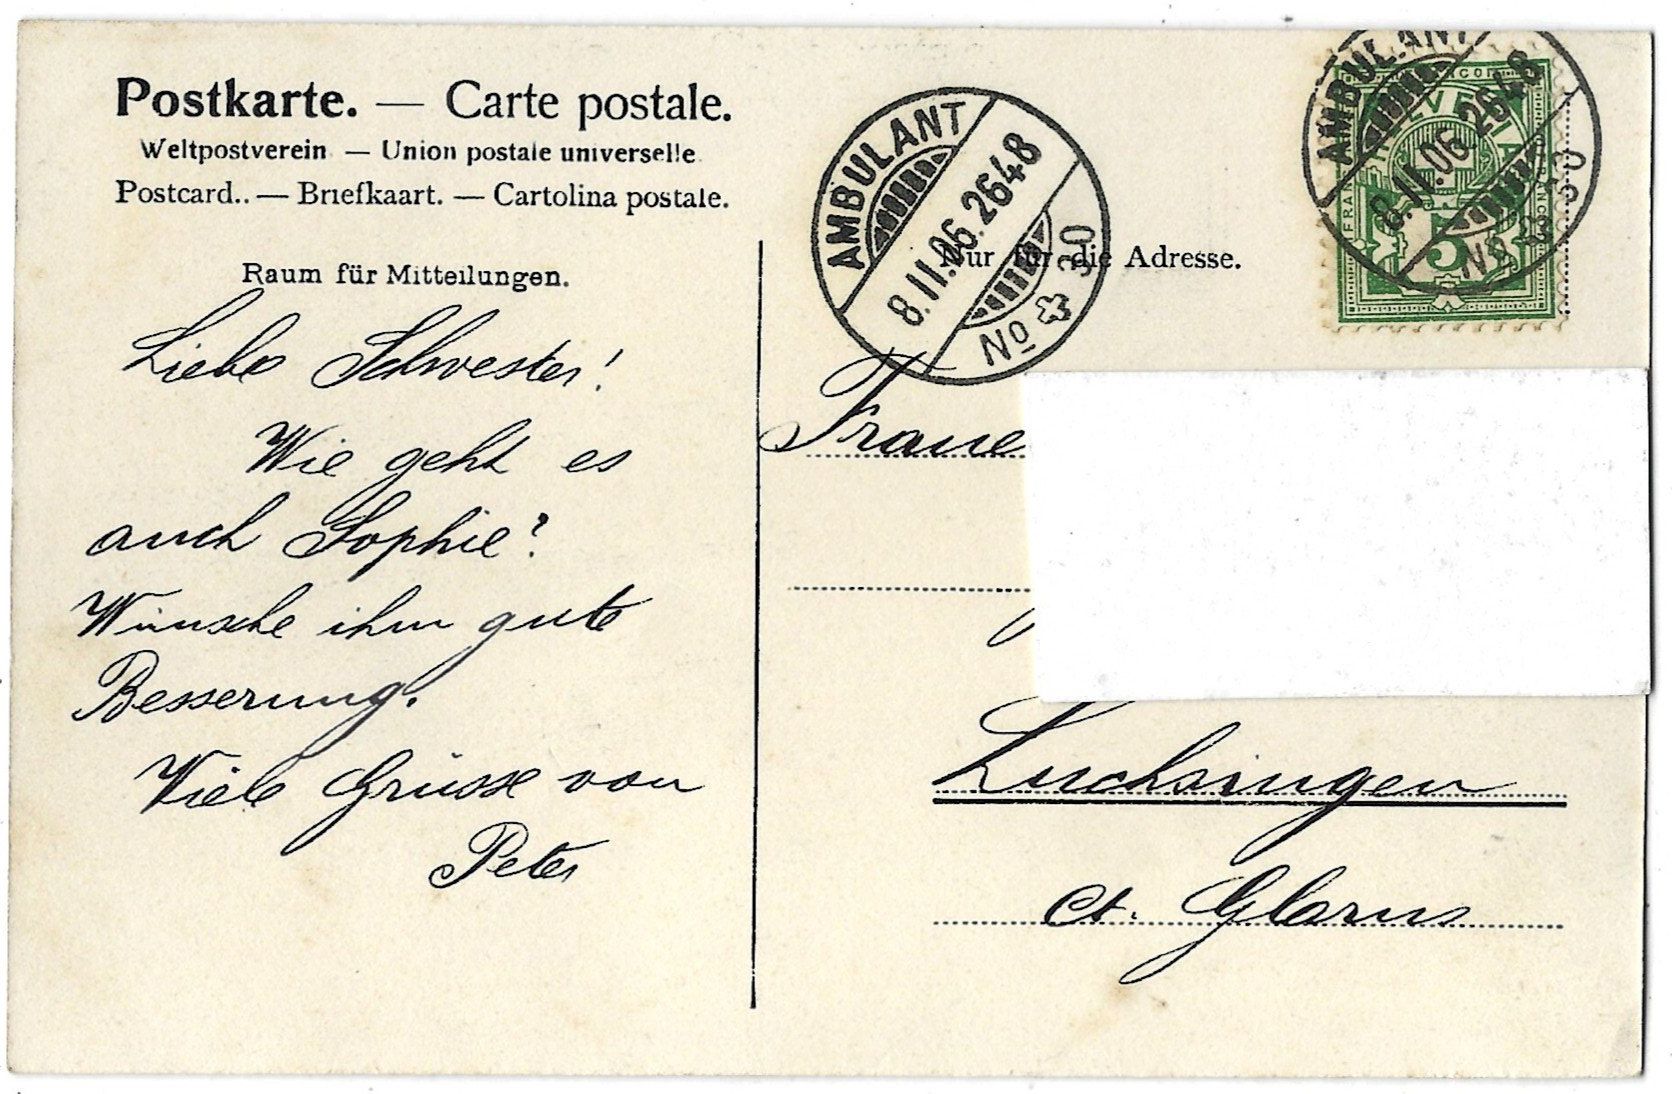 Postkarte. — Carte postale.
Weltpostverein — Union postale universelle
Postcard.. — Briefkaart. — Cartolina postale.
Raum für Mitteilungen.
Liebe Schwester!
Wie geht es
auch Sophie?
Wünsche ihm gute
Besserung.
Viele Grüsse von
Peter
AMBULANT
8.II.06.2648
No 30
Nur für die Adresse.
AMBULANT
8.II.06.2648
No 30
HELVETIA
FRANCO
5
Luchsingen
Ct. Glarus